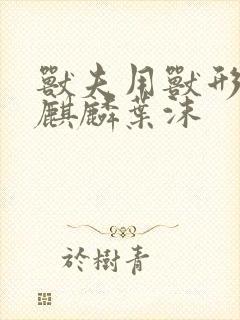 獸夫用獸形
麒麟葉沫
於樹青